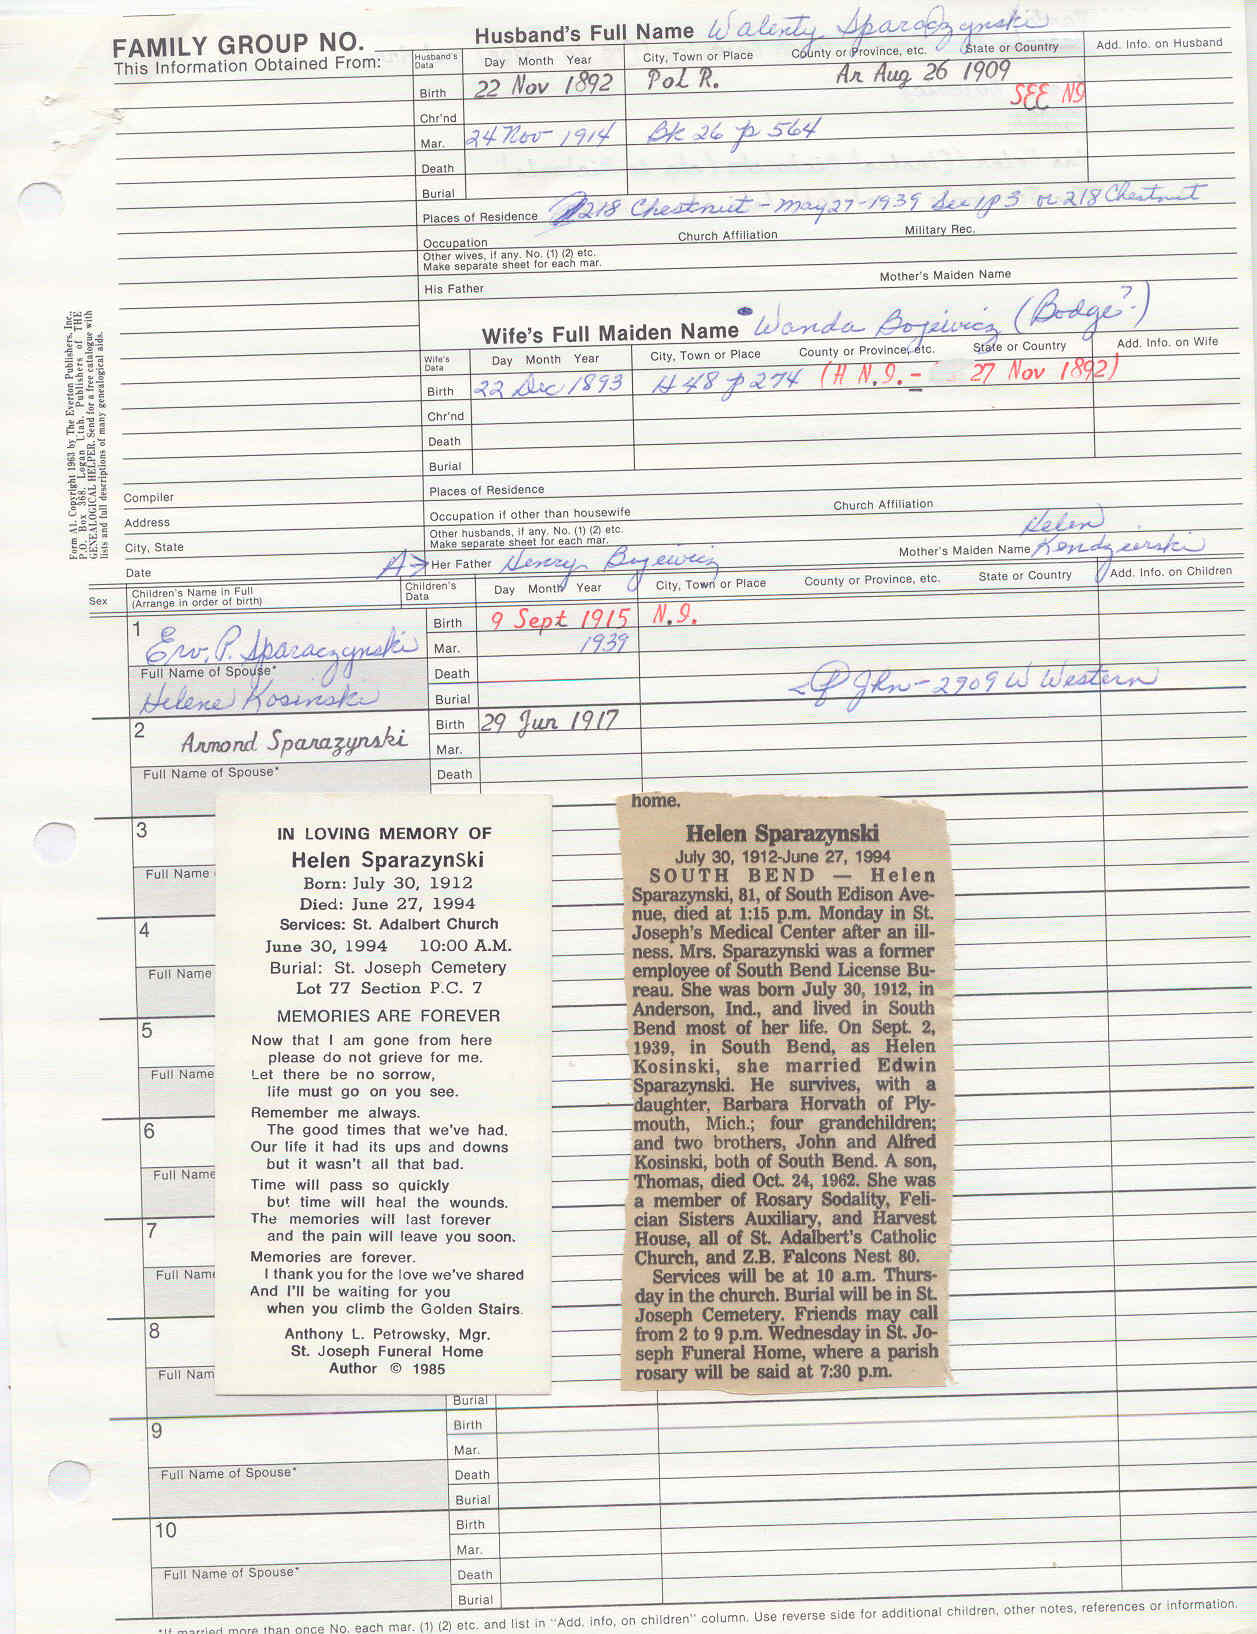 FAMILY GROUP NO.
This Information Obtained From:
Husband's Full Name Walenty Sparaczynski
Husband's Data Day Month Year City, Town or Place County or Province, etc. State or Country Add. Info. on Husband
Birth 22 Nov 1892 Pol R. Ar Aug 26 1909
SEE NI
Chr'nd
Mar. 24 Nov 1914 Bk 26 p 564
Death
Burial
Places of Residence 218 Chestnut - May 27-1939 See 1p3 or 218 Chestnut
Occupation Church Affiliation Military Rec.
Other wives, if any. No. (1) (2) etc.
Make separate sheet for each mar.
His Father Mother's Maiden Name
Wife's Full Maiden Name Wanda Bojewicz (Bodge?)
Wife's Data Day Month Year City, Town or Place County or Province, etc. State or Country Add. Info. on Wife
Birth 22 Dec 1893 H 48 p 274 (H N.I. - 27 Nov 1892)
Chr'nd
Death
Burial
Form A1. Copyright 1963 by The Everton Publishers, Inc.,
P.O. Box 368, Logan Utah. Publishers of THE
GENEALOGICAL HELPER. Send for a free catalogue with
lists and full descriptions of many genealogical aids.
Compiler
Address
City, State
Date
Places of Residence
Occupation if other than housewife Church Affiliation
Other husbands, if any. No. (1) (2) etc.
Make separate sheet for each mar.
A→ Her Father Henry Bojewicz Mother's Maiden Name Helen
Kendzierski
Sex Children's Name in Full
(Arrange in order of birth)
Children's Data Day Month Year City, Town or Place County or Province, etc. State or Country Add. Info. on Children
1 Birth 9 Sept 1915 N.I.
Erv. P. Sparaczynski Mar. 1939
Full Name of Spouse* Death
Helene Kosinski Burial
Jhn - 2909 W Western
2 Birth 29 Jun 1917
Armond Sparazynski Mar.
Full Name of Spouse* Death
3
Full Name
4
Full Name
5
Full Name
6
Full Name
7
Full Name
8
Full Nam
Burial
IN LOVING MEMORY OF
Helen SparazynSki
Born: July 30, 1912
Died: June 27, 1994
Services: St. Adalbert Church
June 30, 1994 10:00 A.M.
Burial: St. Joseph Cemetery
Lot 77 Section P.C. 7
MEMORIES ARE FOREVER
Now that I am gone from here
please do not grieve for me.
Let there be no sorrow,
life must go on you see.
Remember me always.
The good times that we've had.
Our life it had its ups and downs
but it wasn't all that bad.
Time will pass so quickly
but time will heal the wounds.
The memories will last forever
and the pain will leave you soon.
Memories are forever.
I thank you for the love we've shared
And I'll be waiting for you
when you climb the Golden Stairs.
Anthony L. Petrowsky, Mgr.
St. Joseph Funeral Home
Author © 1985
home.
Helen Sparazynski
July 30, 1912-June 27, 1994
SOUTH BEND — Helen
Sparazynski, 81, of South Edison Ave-
nue, died at 1:15 p.m. Monday in St.
Joseph's Medical Center after an ill-
ness. Mrs. Sparazynski was a former
employee of South Bend License Bu-
reau. She was born July 30, 1912, in
Anderson, Ind., and lived in South
Bend most of her life. On Sept. 2,
1939, in South Bend, as Helen
Kosinski, she married Edwin
Sparazynski. He survives, with a
daughter, Barbara Horvath of Ply-
mouth, Mich.; four grandchildren;
and two brothers, John and Alfred
Kosinski, both of South Bend. A son,
Thomas, died Oct. 24, 1962. She was
a member of Rosary Sodality, Feli-
cian Sisters Auxiliary, and Harvest
House, all of St. Adalbert's Catholic
Church, and Z.B. Falcons Nest 80.
Services will be at 10 a.m. Thurs-
day in the church. Burial will be in St.
Joseph Cemetery. Friends may call
from 2 to 9 p.m. Wednesday in St. Jo-
seph Funeral Home, where a parish
rosary will be said at 7:30 p.m.
9 Birth
Mar.
Full Name of Spouse* Death
Burial
10 Birth
Mar.
Full Name of Spouse* Death
Burial
*If married more than once No. each mar. (1) (2) etc. and list in "Add. info, on children" column. Use reverse side for additional children, other notes, references or information.